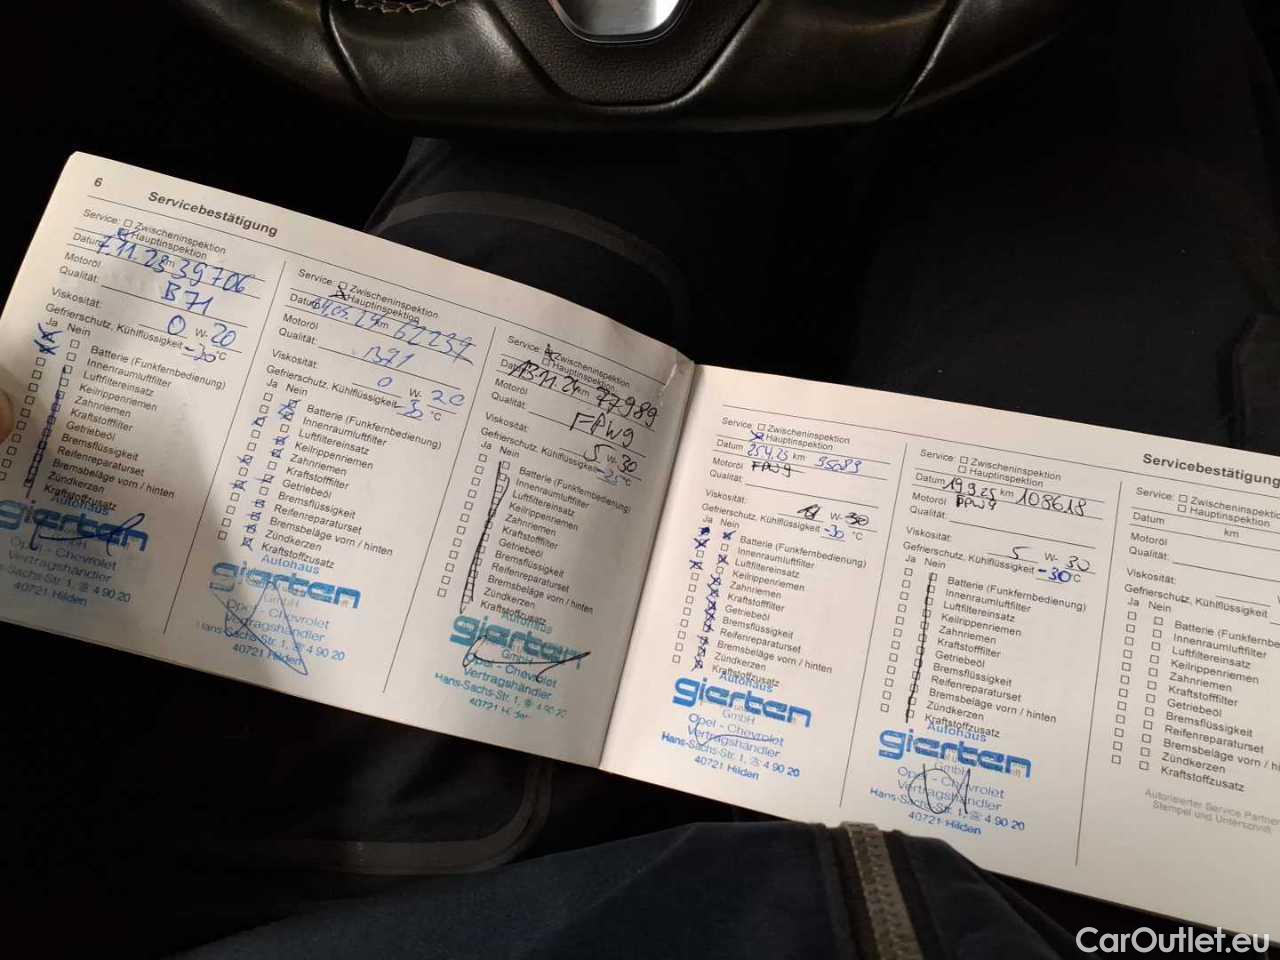 6
Servicebestätigung
Service: Zwischeninspektion
Hauptinspektion
Datum 7.11.23 km 39706
Motoröl
Qualität: B71
Viskosität: 0 W- 20
Gefrierschutz, Kühlflüssigkeit -30 °C
Ja Nein
Batterie (Funkfernbedienung)
Innenraumluftfilter
Luftfiltereinsatz
Keilrippenriemen
Zahnriemen
Kraftstofffilter
Getriebeöl
Bremsflüssigkeit
Reifenreparaturset
Bremsbeläge vorn / hinten
Zündkerzen
Kraftstoffzusatz
Autohaus
gierten
GmbH
Opel - Chevrolet
Vertragshändler
Hans-Sachs-Str. 1, ☏ 4 90 20
40721 Hilden
Service: Zwischeninspektion
Hauptinspektion
Datum km
Motoröl
Qualität: B71
Viskosität: 0 W- 20
Gefrierschutz, Kühlflüssigkeit -30 °C
Ja Nein
Batterie (Funkfernbedienung)
Innenraumluftfilter
Luftfiltereinsatz
Keilrippenriemen
Zahnriemen
Kraftstofffilter
Getriebeöl
Bremsflüssigkeit
Reifenreparaturset
Bremsbeläge vorn / hinten
Zündkerzen
Kraftstoffzusatz
Autohaus
gierten
GmbH
Opel - Chevrolet
Vertragshändler
Hans-Sachs-Str. 1, ☏ 4 90 20
40721 Hilden
Service: Zwischeninspektion
Hauptinspektion
Datum 13.11.24 km 77989
Motoröl
Qualität: FPW9
Viskosität: 5 W- 30
Gefrierschutz, Kühlflüssigkeit °C
Ja Nein
Batterie (Funkfernbedienung)
Innenraumluftfilter
Luftfiltereinsatz
Keilrippenriemen
Zahnriemen
Kraftstofffilter
Getriebeöl
Bremsflüssigkeit
Reifenreparaturset
Bremsbeläge vorn / hinten
Zündkerzen
Kraftstoffzusatz
Autohaus
gierten
GmbH
Opel - Chevrolet
Vertragshändler
Hans-Sachs-Str. 1, ☏ 4 90 20
40721 Hilden
Servicebestätigung
Service: Zwischeninspektion
Hauptinspektion
Datum 25.4.25 km 95089
Motoröl FPW9
Qualität:
Viskosität: W- 30
Gefrierschutz, Kühlflüssigkeit -30 °C
Ja Nein
Batterie (Funkfernbedienung)
Innenraumluftfilter
Luftfiltereinsatz
Keilrippenriemen
Zahnriemen
Kraftstofffilter
Getriebeöl
Bremsflüssigkeit
Reifenreparaturset
Bremsbeläge vorn / hinten
Zündkerzen
Kraftstoffzusatz
Autohaus
gierten
GmbH
Opel - Chevrolet
Vertragshändler
Hans-Sachs-Str. 1, ☏ 4 90 20
40721 Hilden
Service: Zwischeninspektion
Hauptinspektion
Datum 19.9.25 km 108618
Motoröl FPW9
Qualität:
Viskosität: 5 W- 30
Gefrierschutz, Kühlflüssigkeit -30 °C
Ja Nein
Batterie (Funkfernbedienung)
Innenraumfilter
Luftfiltereinsatz
Keilrippenriemen
Zahnriemen
Kraftstofffilter
Getriebeöl
Bremsflüssigkeit
Reifenreparaturset
Bremsbeläge vorn / hinten
Zündkerzen
Kraftstoffzusatz
Autohaus
gierten
GmbH
Opel - Chevrolet
Vertragshändler
Hans-Sachs-Str. 1, ☏ 4 90 20
40721 Hilden
Service: Zwischeninspektion
Hauptinspektion
Datum km
Motoröl
Qualität:
Viskosität:
Gefrierschutz, Kühlflüssigkeit
Ja Nein
Batterie (Funkfernbedienung)
Innenraumfilter
Luftfiltereinsatz
Keilrippenriemen
Zahnriemen
Kraftstofffilter
Getriebeöl
Bremsflüssigkeit
Reifenreparaturset
Bremsbeläge vorn / hinten
Zündkerzen
Kraftstoffzusatz
Autorisierter Service Partner
Stempel und Unterschrift
CarOutlet.eu